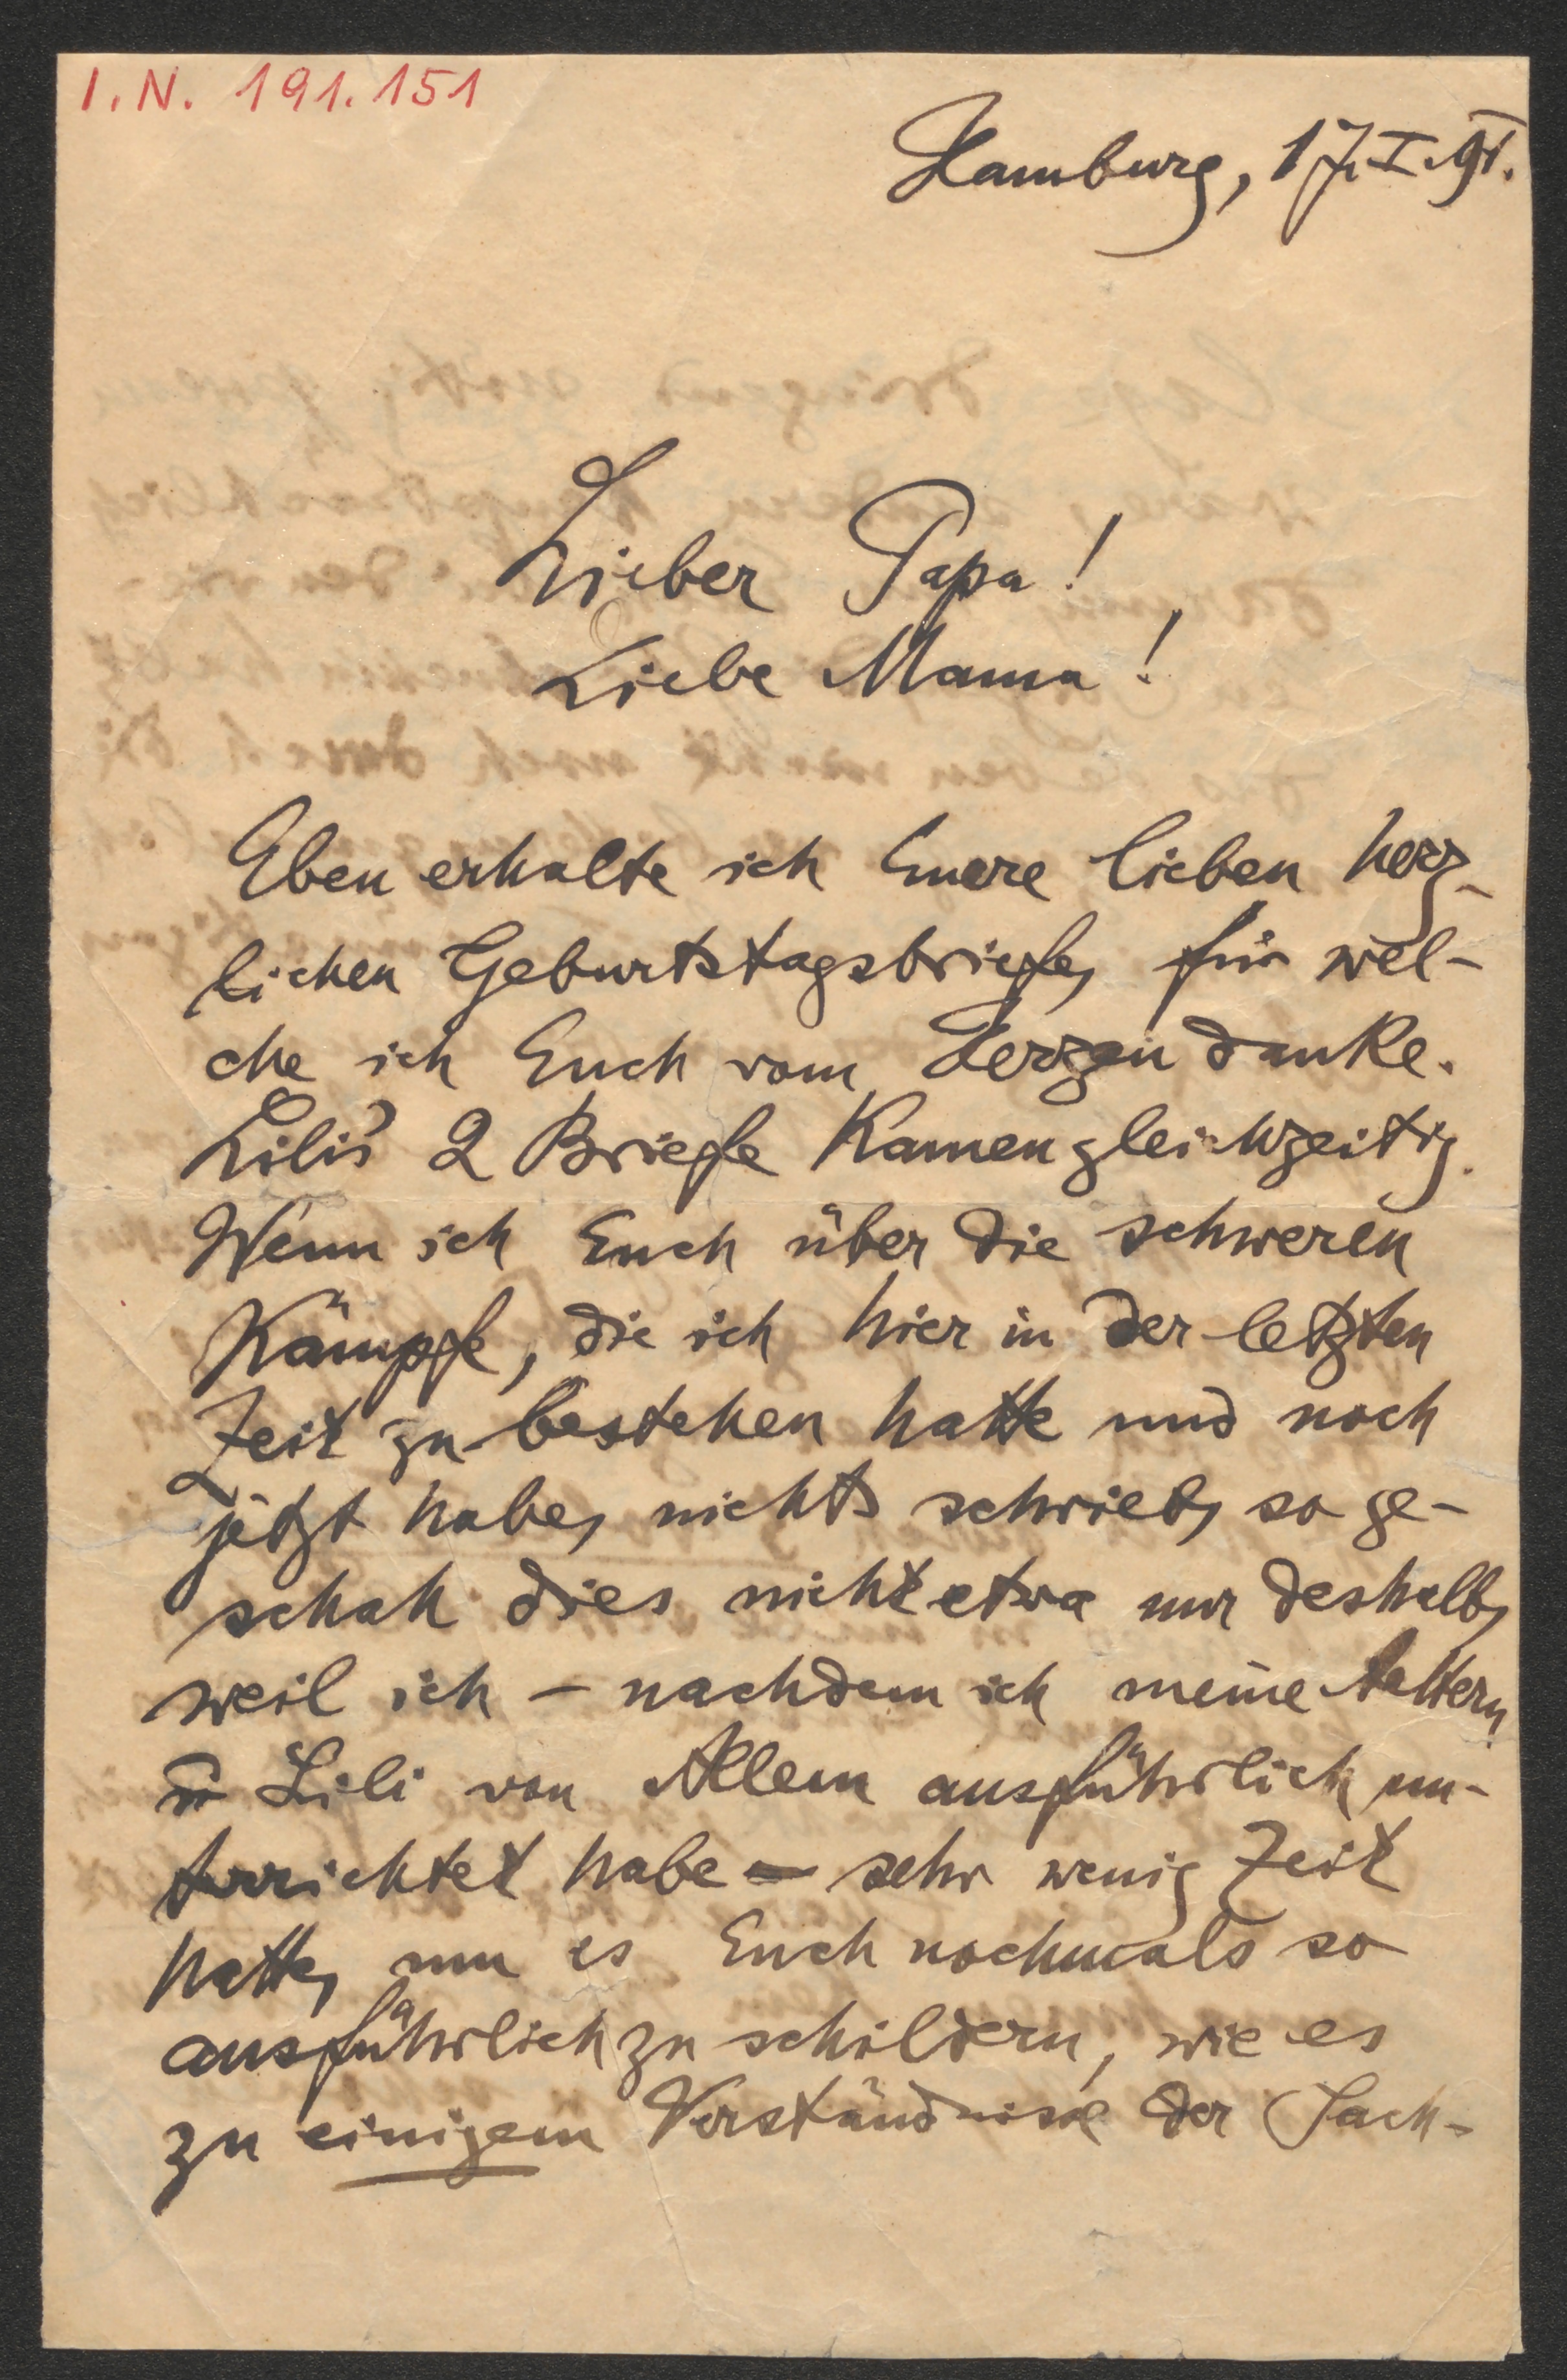 I.N. 191.151
Hamburg, 17. I. 91.
Lieber Papa!
Liebe Mama!
Eben erhalte ich Euere lieben herz-
lichen Geburtstagsbriefe, für wel-
che ich Euch vom Herzen danke.
Lili's 2 Briefe kamen gleichzeitig.
Wenn ich Euch über die schweren
Kämpfe, die ich hier in der letzten
Zeit zu bestehen hatte und noch
jetzt habe, nichts schrieb, so ge-
schah dies nicht etwa nur deshalb,
weil ich – nachdem ich meine Aeltern
u Lili von Allem ausführlich un-
terrichtet habe – sehr wenig Zeit
hatte, um es Euch nochmals so
ausführlich zu schildern, wie es
zu einigem Verständnisse der Sach-